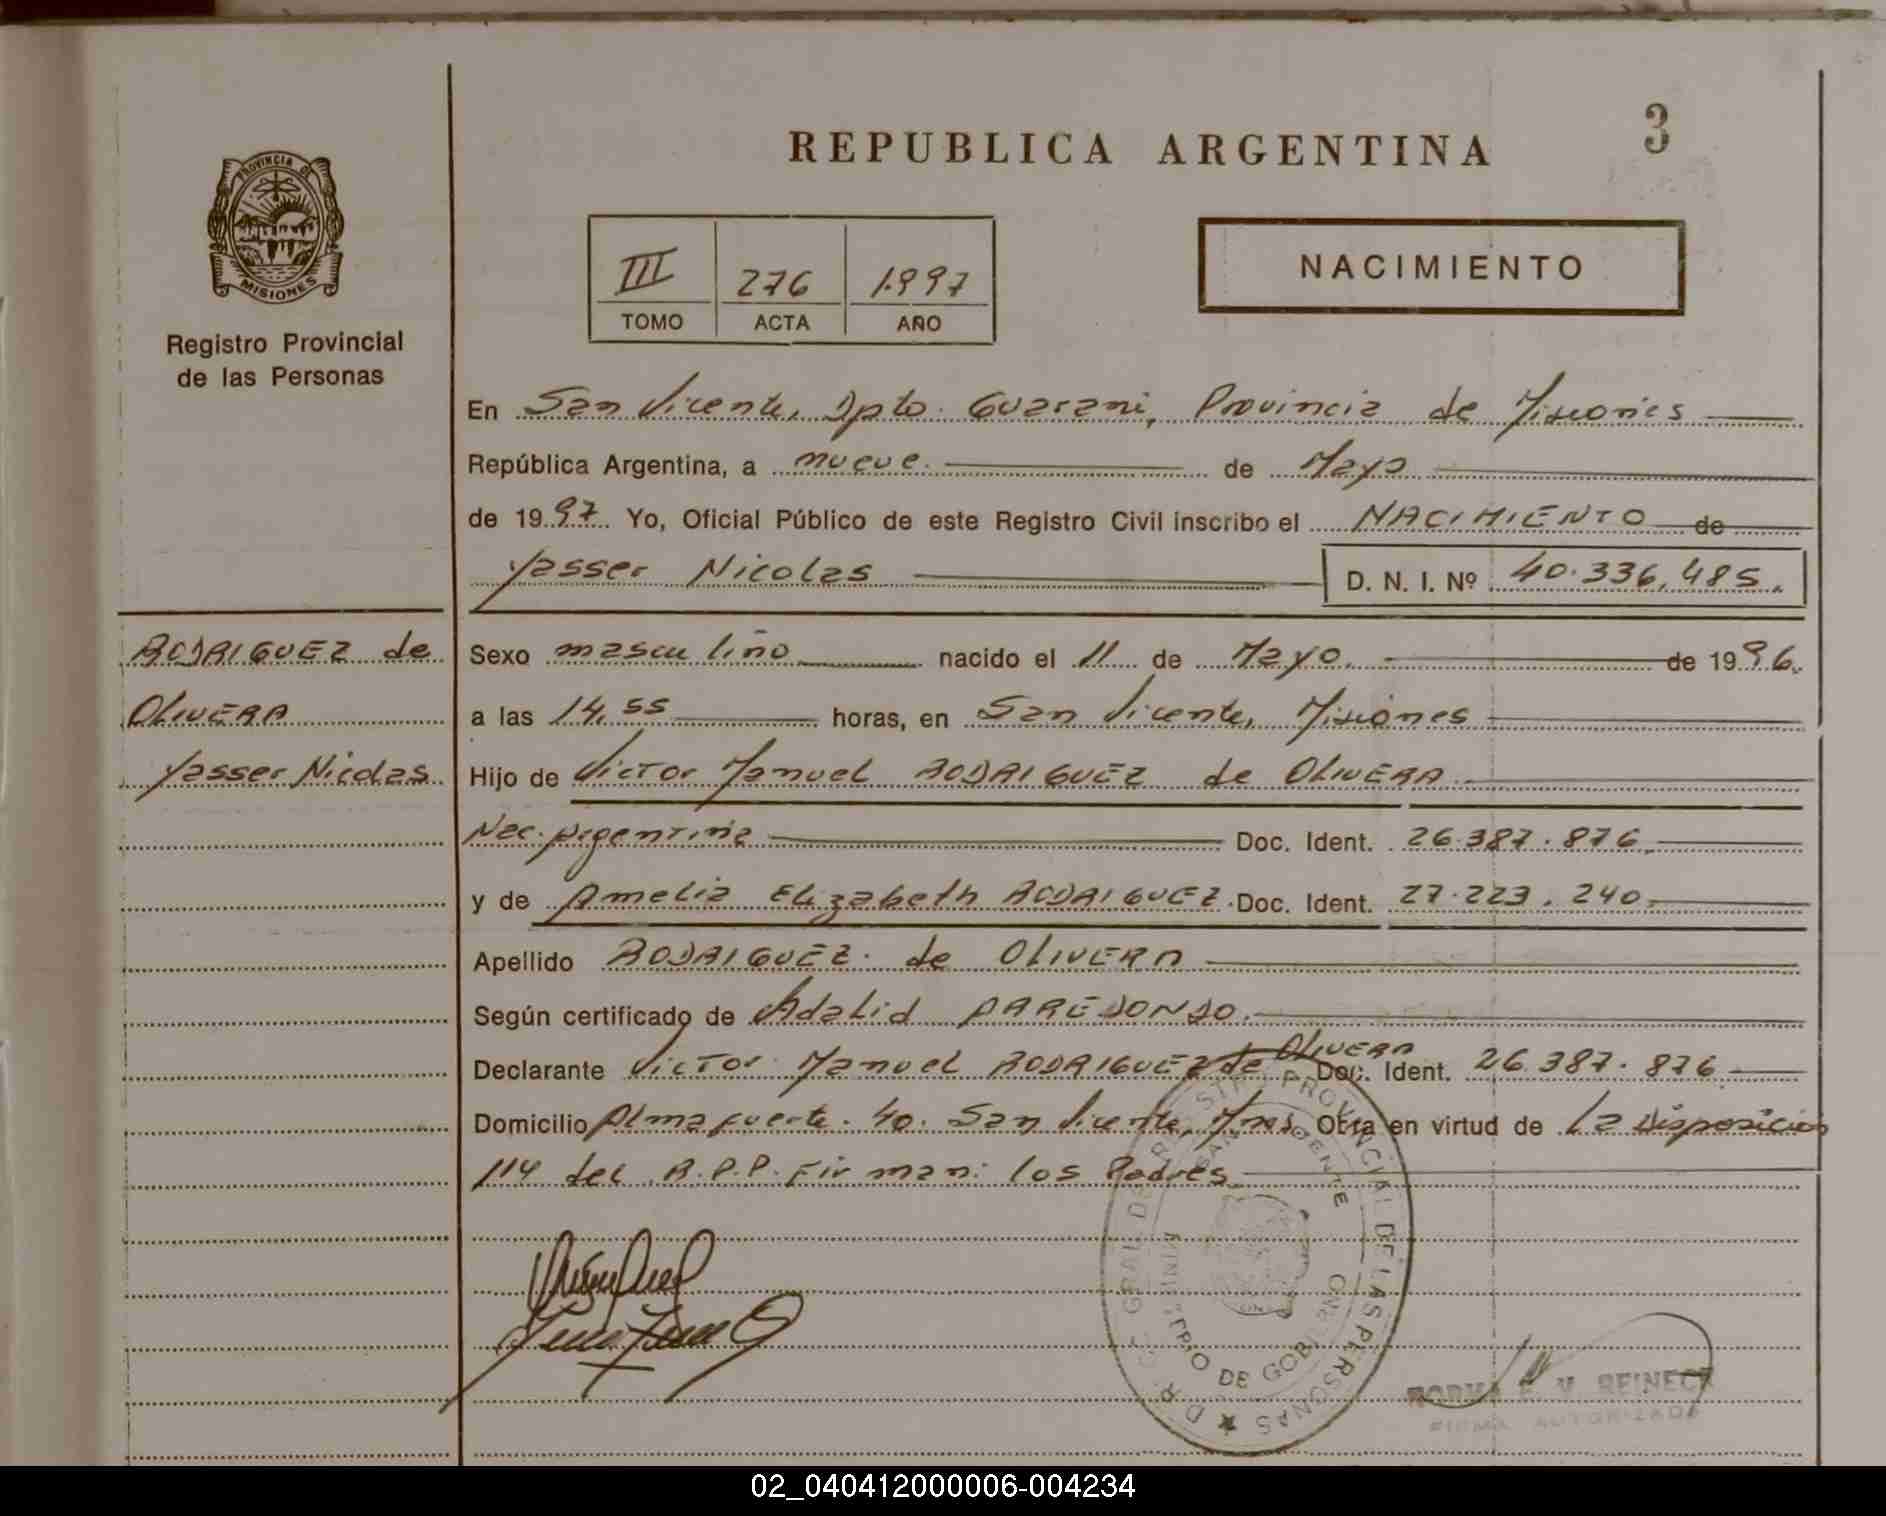 REPUBLICA ARGENTINA
3
PROVINCIA DE
MISIONES
Registro Provincial
de las Personas
III 276 1.997
TOMO ACTA AÑO
NACIMIENTO
En San Vicente, Dpto. Guarani, Provincia de Misiones
República Argentina, a nueve. de Mayo
de 1997 Yo, Oficial Público de este Registro Civil inscribo el NACIMIENTO de
Yasser Nicolas D. N. I. Nº 40.336,485.
RODRIGUEZ de
OLIVERA
Yasser Nicolas
Sexo masculino nacido el 11 de Mayo. de 1996.
a las 14,55 horas, en San Vicente, Misiones
Hijo de Victor Manuel RODRIGUEZ de OLIVERA
Nac. Argentina Doc. Ident. 26.387.876.
y de Amelia Elizabeth RODRIGUEZ Doc. Ident. 27.223.240.
Apellido RODRIGUEZ de OLIVERA
Según certificado de Adalid PAREDONDO.
Declarante Victor Manuel RODRIGUEZ de OLIVERA Doc. Ident. 26.387.876.
Domicilio Almafuerte. 40. San Vicente, Mnes Obra en virtud de La Disposicion
114 del R.P.P. Firman: los Padres
DE LAS PERSONAS
DE GOBIERNO
REINECK
FIRMA AUTORIZADA
02_040412000006-004234